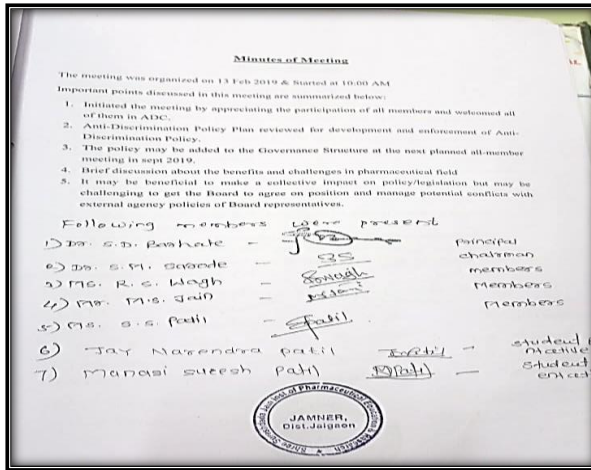 Minutes of Meeting
The meeting was organized on 13 Feb 2019 & Started at 10:00 AM
Important points discussed in this meeting are summarized below:
1. Initiated the meeting by appreciating the participation of all members and welcomed all
of them in ADC.
2. Anti-Discrimination Policy Plan reviewed for development and enforcement of Anti-
Discrimination Policy.
3. The policy may be added to the Governance Structure at the next planned all-member
meeting in sept 2019.
4. Brief discussion about the benefits and challenges in pharmaceutical field
5. It may be beneficial to make a collective impact on policy/legislation but may be
challenging to get the Board to agree on position and manage potential conflicts with
external agency policies of Board representatives.
Following members were present
1) Dr. S.D. - Principal
2) Dr. S.M. - chairman
3) Ms. R. S. Wagh - Swagh members
4) Mr. M.S. Jain - Members
5) Ms. S.S. Patil - Patil Members
6) Jay Narendra patil - student
7) Manasi suresh Patil - student
Jain Inst of Pharmaceutical Education & Research
JAMNER,
Dist.Jalgaon